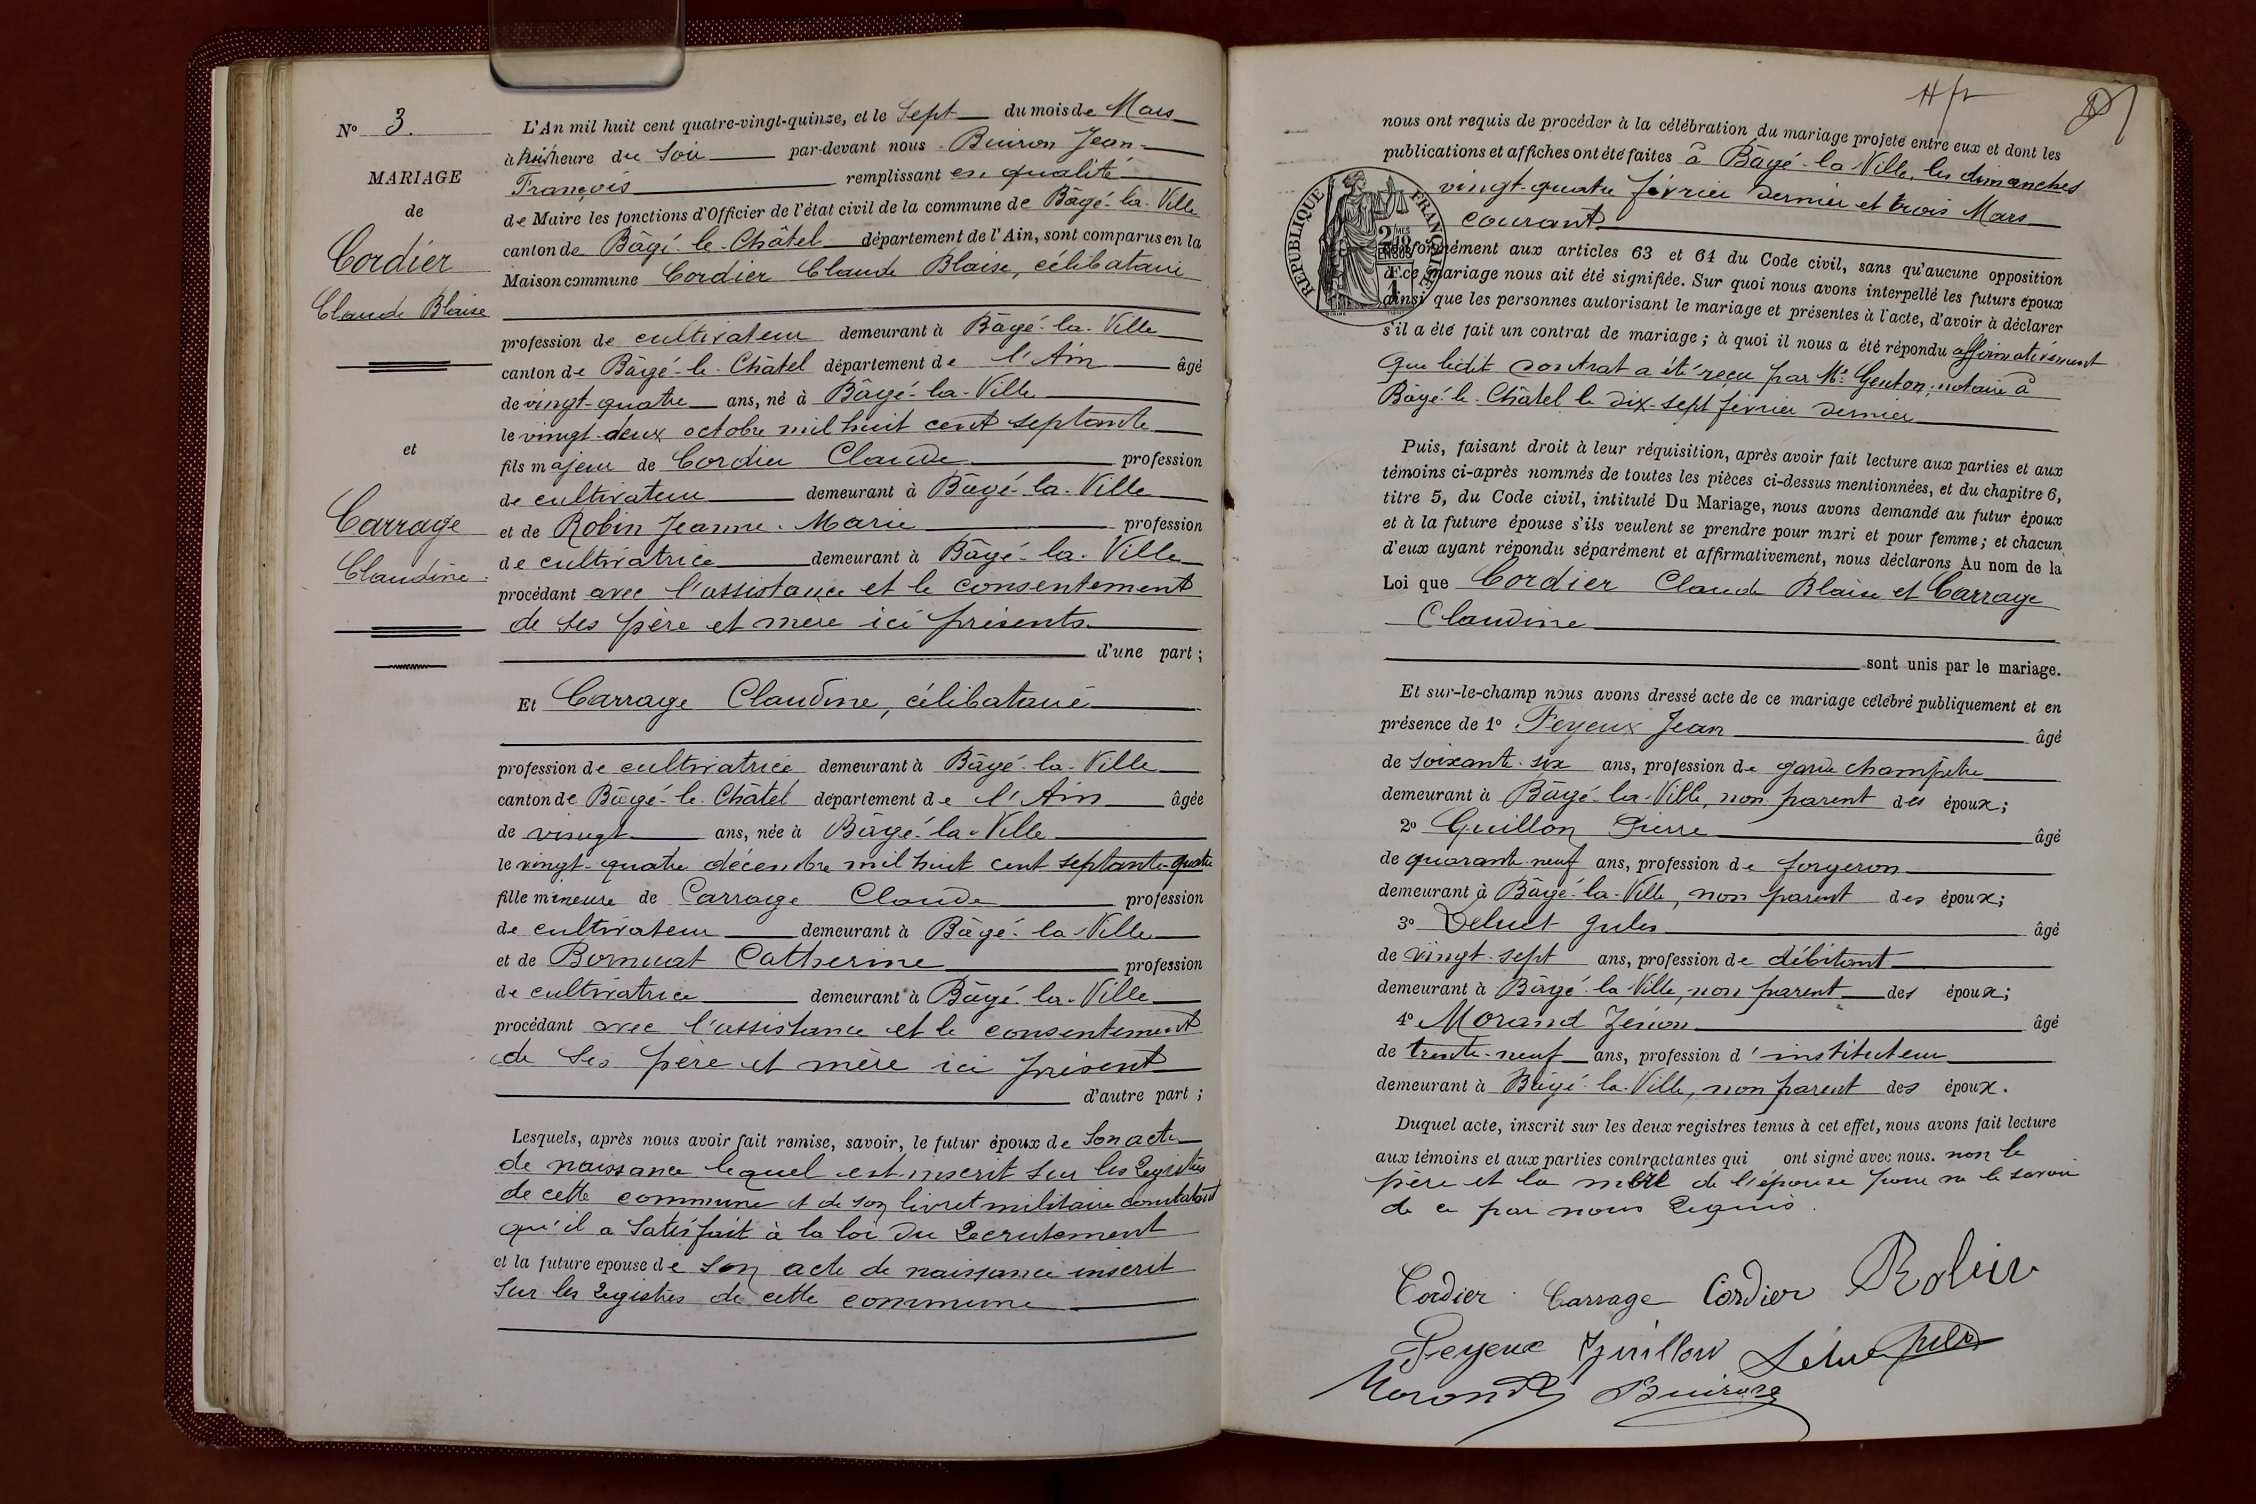 Nº 3.
MARIAGE
de
Cordier
Claude Blaise
et
Carrage
Claudine.
L'An mil huit cent quatre-vingt-quinze, et le Sept du mois de Mars
à heure du Soir par-devant nous Buiron Jean-
François remplissant en qualité
de Maire les fonctions d'Officier de l'état civil de la commune de Bâgé-la-Ville
canton de Bâgé-le-Châtel département de l'Ain, sont comparus en la
Maison commune Cordier Claude Blaise, célibataire
profession de cultivateur demeurant à Bâgé-la-Ville
canton de Bâgé-le-Châtel département de l'Ain âgé
de vingt-quatre ans, né à Bâgé-la-Ville
le vingt-deux octobre mil huit cent septante
fils majeur de Cordier Claude profession
de cultivateur demeurant à Bâgé-la-Ville
et de Robin Jeanne-Marie profession
de cultivatrice demeurant à Bâgé-la-Ville
procédant avec l'assistance et le consentement
de ses père et mère ici présents
d'une part ;
Et Carrage Claudine, célibataire
profession de cultivatrice demeurant à Bâgé-la-Ville
canton de Bâgé-le-Châtel département de l'Ain âgée
de vingt ans, née à Bâgé-la-Ville
le vingt-quatre décembre mil huit cent septante-quatre
fille mineure de Carrage Claude profession
de cultivateur demeurant à Bâgé-la-Ville
et de Bornuat Catherine profession
de cultivatrice demeurant à Bâgé-la-Ville
procédant avec l'assistance et le consentement
de ses père et mère ici présent
d'autre part ;
Lesquels, après nous avoir fait remise, savoir, le futur époux de son acte
de naissance lequel est inscrit sur les registres
de cette commune et de son livret militaire constatant
qu'il a satisfait à la loi du recrutement
et la future épouse de son acte de naissance inscrit
sur les registres de cette commune
nous ont requis de procéder à la célébration du mariage projeté entre eux et dont les
publications et affiches ont été faites à Bâgé-la-Ville, les dimanches
vingt-quatre février dernier et trois Mars
courant
RÉPUBLIQUE FRANÇAISE
conformément aux articles 63 et 64 du Code civil, sans qu'aucune opposition
à ce mariage nous ait été signifiée. Sur quoi nous avons interpellé les futurs époux
ainsi que les personnes autorisant le mariage et présentes à l'acte, d'avoir à déclarer
s'il a été fait un contrat de mariage ; à quoi il nous a été répondu affirmativement
que ledit contrat a été reçu par Me Genton, notaire à
Bâgé-le-Châtel le dix-sept février dernier
Puis, faisant droit à leur réquisition, après avoir fait lecture aux parties et aux
témoins ci-après nommés de toutes les pièces ci-dessus mentionnées, et du chapitre 6,
titre 5, du Code civil, intitulé Du Mariage, nous avons demandé au futur époux
et à la future épouse s'ils veulent se prendre pour mari et pour femme ; et chacun
d'eux ayant répondu séparément et affirmativement, nous déclarons Au nom de la
Loi que Cordier Claude Blaise et Carrage
Claudine
sont unis par le mariage.
Et sur-le-champ nous avons dressé acte de ce mariage célébré publiquement et en
présence de 1º Feyeux Jean âgé
de soixante-six ans, profession de garde champêtre
demeurant à Bâgé-la-Ville, non parent des époux ;
2º Guillon Pierre âgé
de quarante-neuf ans, profession de forgeron
demeurant à Bâgé-la-Ville, non parent des époux ;
3º Deluet Jules âgé
de vingt-sept ans, profession de débitant
demeurant à Bâgé-la-Ville, non parent des époux ;
4º Morand Zénon âgé
de trente-neuf ans, profession d'instituteur
demeurant à Bâgé-la-Ville, non parent des époux.
Duquel acte, inscrit sur les deux registres tenus à cet effet, nous avons fait lecture
aux témoins et aux parties contractantes qui ont signé avec nous. non le
père et la mère de l'épouse pour ne le savoir
de ce par nous requis.
Cordier Carrage Cordier Robin
Feyeux Guillon
Morand Buiron